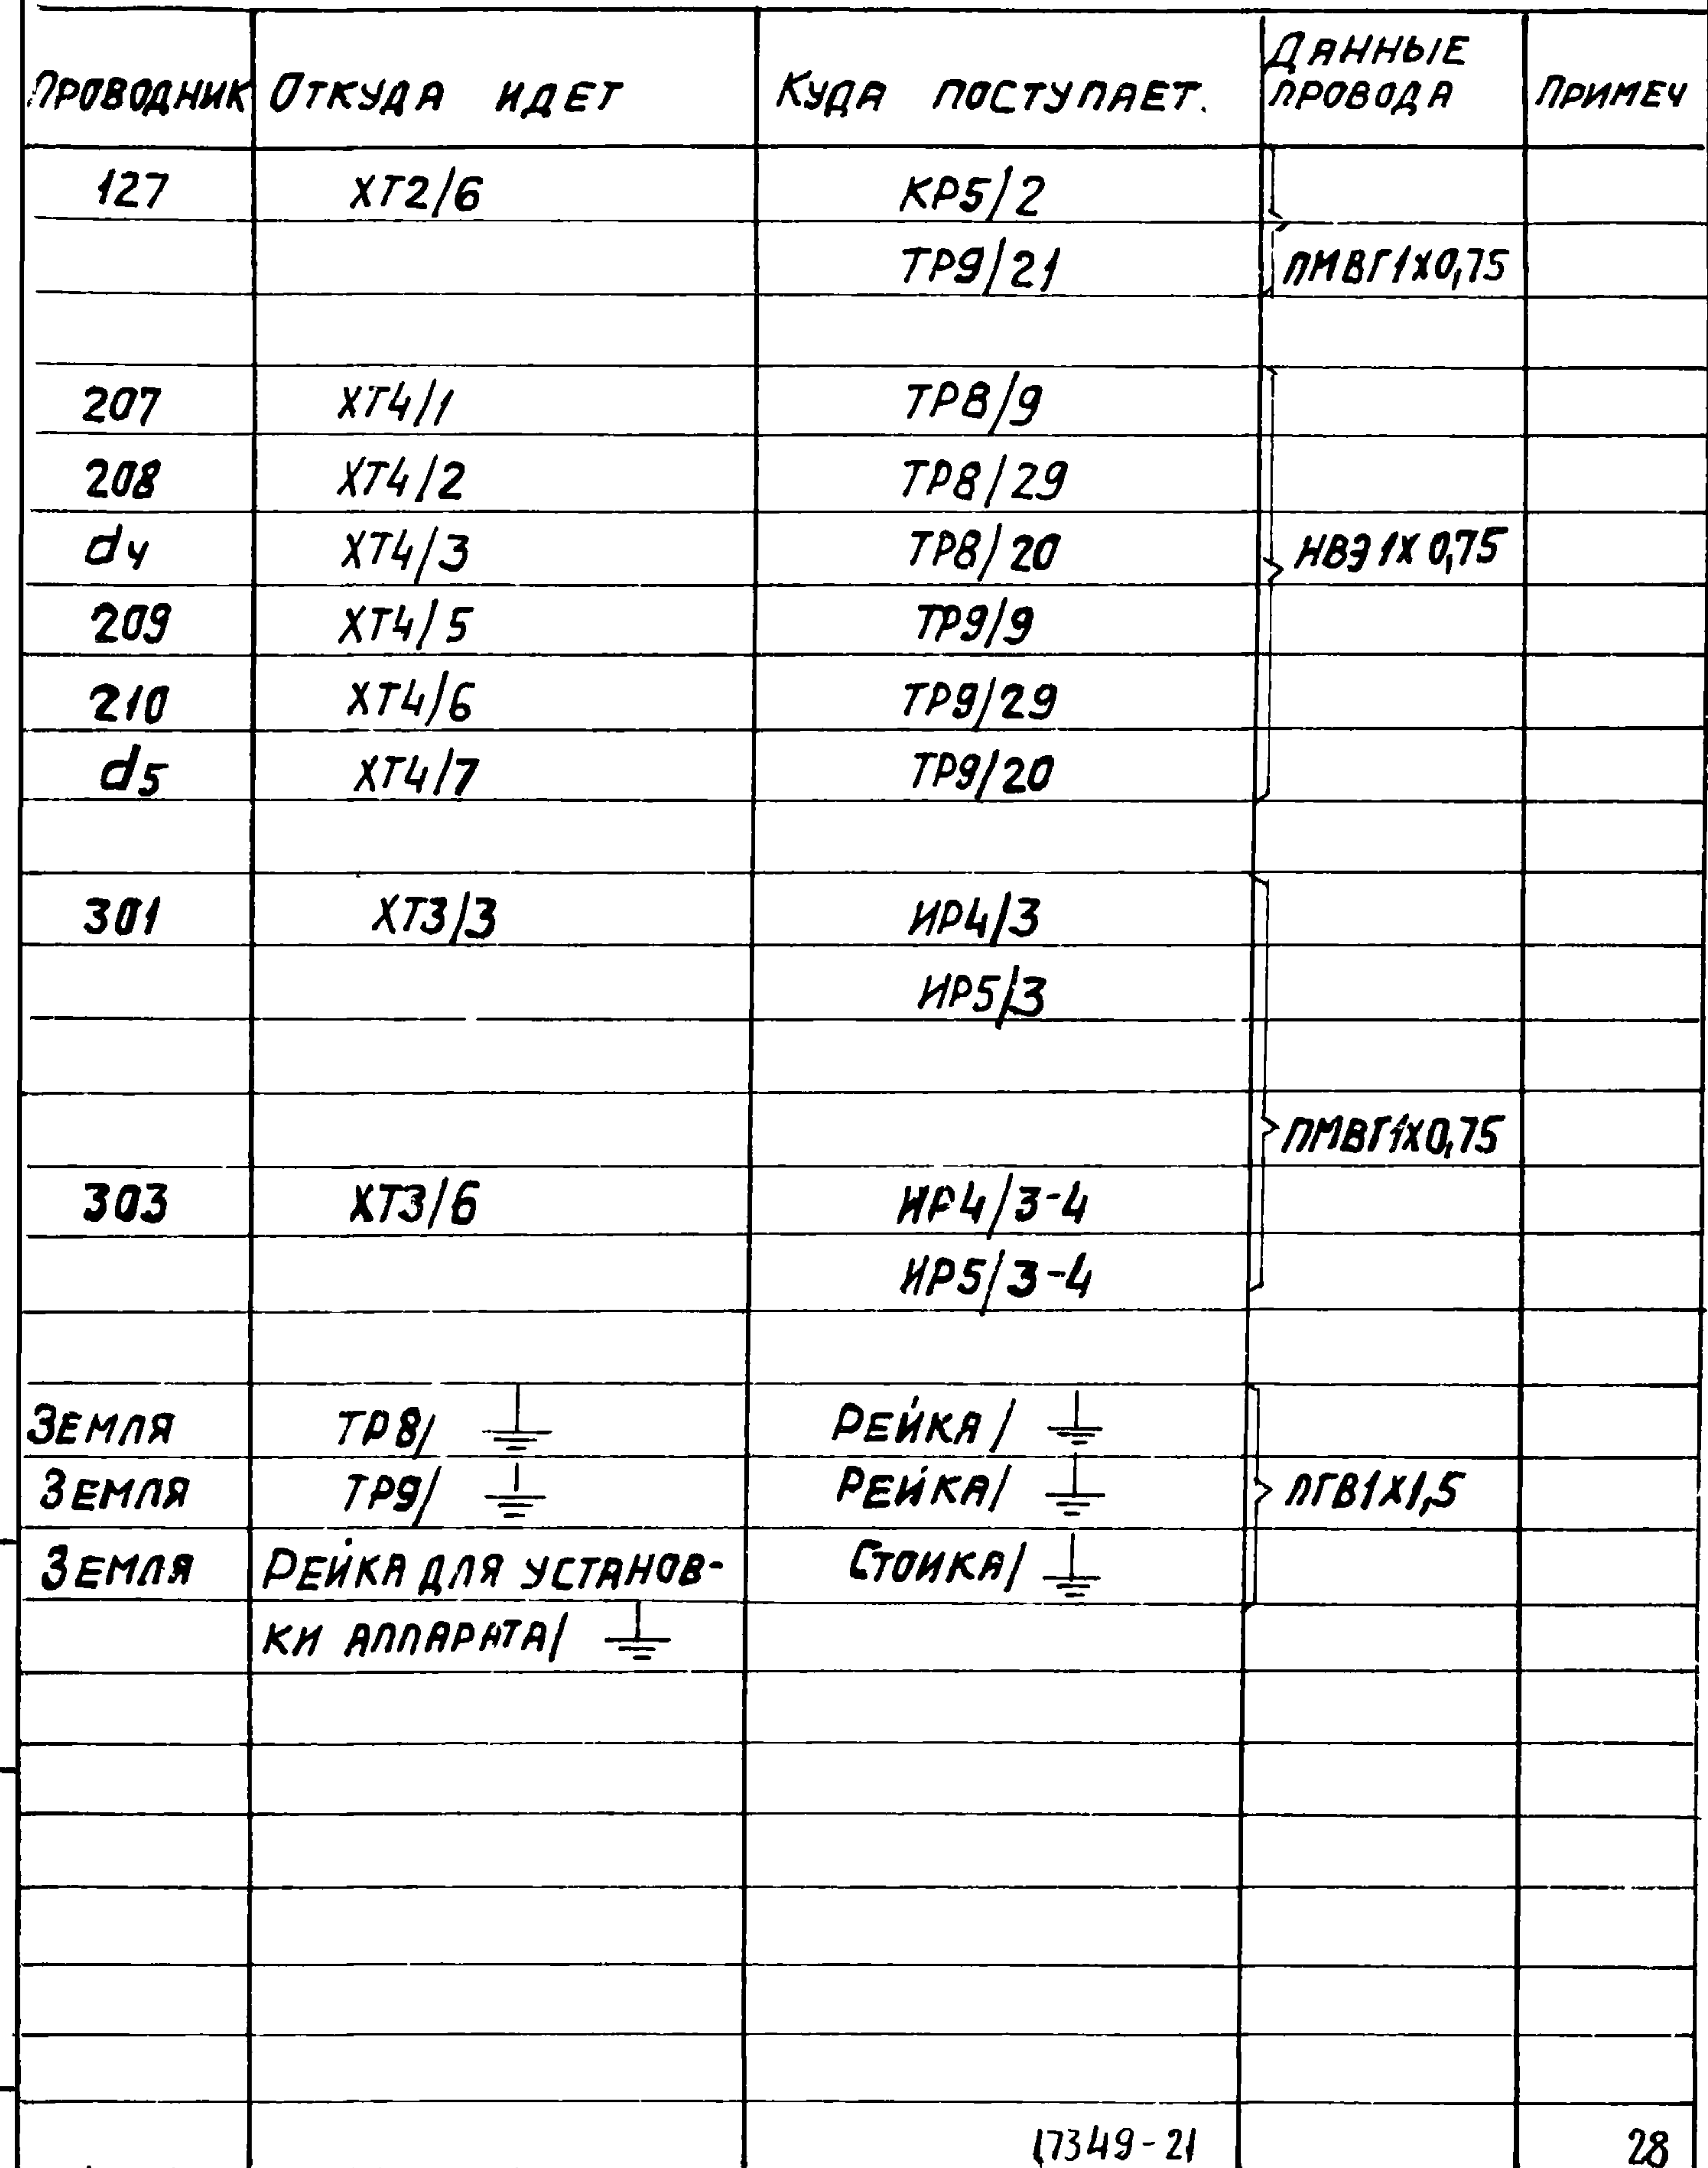 Проводник Откуда идет Куда поступает. Данные провода Примеч
127 ХТ2/6 КР5/2
ТР9/21 ПМВГ1х0,75
207 ХТ4/1 ТР8/9
208 ХТ4/2 ТР8/29
d4 ХТ4/3 ТР8/20 НВЭ 1х0,75
209 ХТ4/5 ТР9/9
210 ХТ4/6 ТР9/29
d5 ХТ4/7 ТР9/20
301 ХТ3/3 ИР4/3
ИР5/3
ПМВГ1х0,75
303 ХТ3/6 ИР4/3-4
ИР5/3-4
Земля ТР8/ Рейка/
Земля ТР9/ Рейка/ ПГВ1х1,5
Земля Рейка для установ- Стоика/
ки аппарата/
17349-21 28